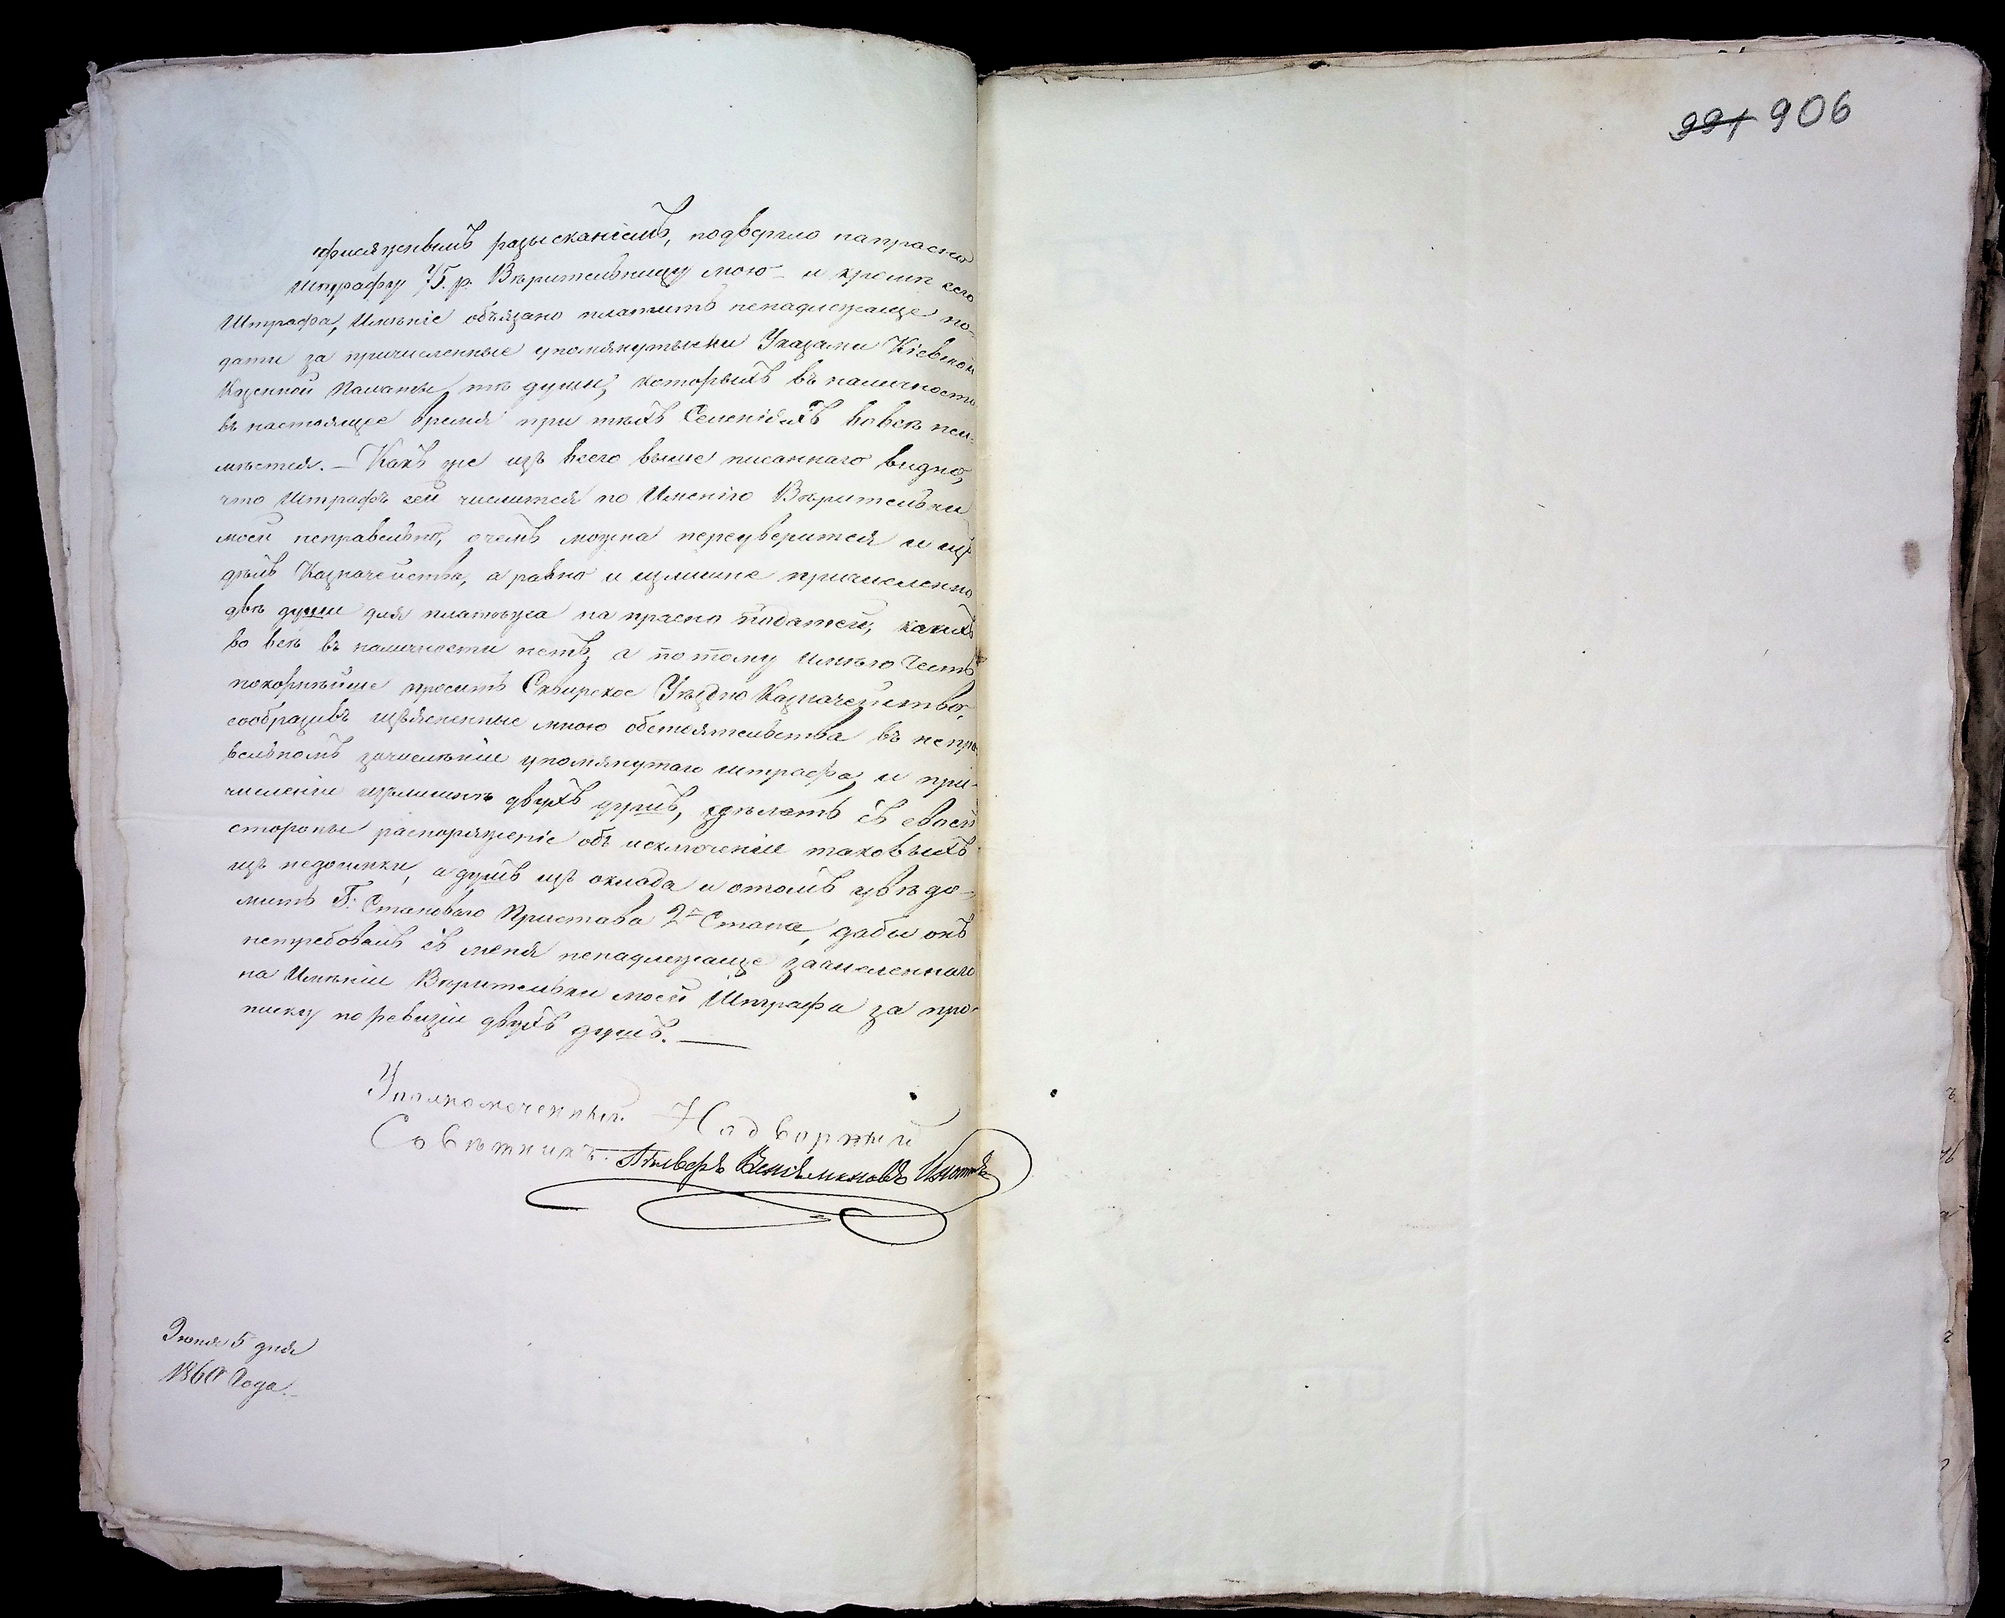 906
991
присяжнымъ разысканіемъ, подвергло напрасно
штрафу 75. р. Вѣрительницу мою и кромѣ сего
Штрафа, Имѣніе обязано платить ненадлежаще по-
дати за причисленные упомянутыми Указами Кіевской
Казенной Палаты тѣ души, которыхъ въ наличности
въ настоящее время при тѣхъ Селеніяхъ вовсѣ неи-
мѣется. – Какъ же изъ всего выше писаннаго видно,
что Штрафъ сей числится по Имѣнію Вѣрительки
моей неправельно, очемъ можна переуверится и изъ
дѣлъ Казначейства, а равно и излишне причисленно
двѣ души для платежа на прасно податей, какихъ
во всѣ въ наличности нетъ, а потому имѣю Честь
покорнѣйше просить Сквирское Уѣздно Казначейство,
сообразивъ изъясненные мною обстоятельства въ непра-
вельномъ зачисленіи упомянутаго штрафа, и при-
численіи излишнѣ двухъ душъ, здѣлать съ своей
стороны распоряженіе объ исключеніи таковыхъ
изъ недоимки, а душъ изъ оклада и отомъ увѣдо-
мить Г. Становаго Пристава 2го Стана, дабы онъ
нетребовалъ съ меня ненадлежаще зачисленнаго
на Имѣніи Вѣрительки моей Штрафа за про-
писку поревизіи двухъ душъ. —
Уполномоченный Надворный
Совѣтникъ.
Іюня 5 дня
1860 Года.